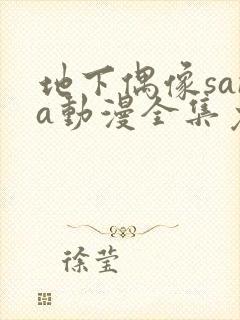 地下偶像sa
a動漫全集
徐莹